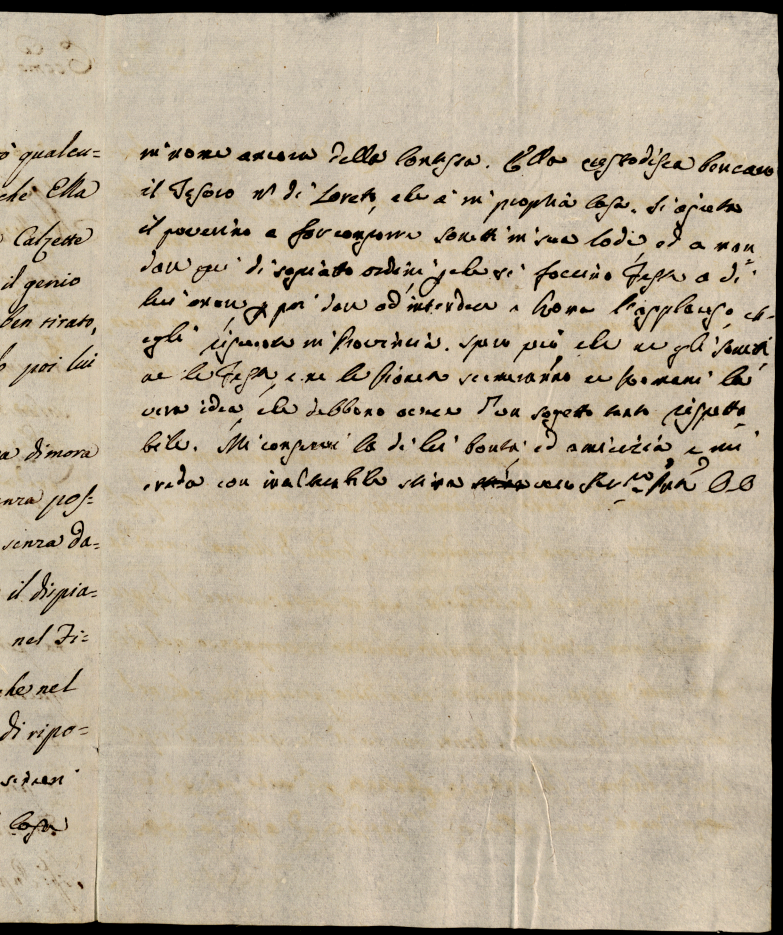 ò qualcu=
che Ella
Calzette
il genio
ben tirato,
poi lui
dimora
enza pos=
senza da=
il dispia=
nel Fi=
che nel
di ripo=
Casa
in nome ancora della Contessa. Ella custodisca
il Tesoro di Loreto, che è in propria Casa. Si aiuta
il poverino a far comporre Sonetti in sua lode, ed a man
dar di soppiatto ordini, che si faccino Feste a di
lui onore per poi dar ad intendere a Roma l'applauso ch'=
egli riscuote in Provincia. Spero più che ne gli Sonetti
ne le Feste, ne la Romani la
vera idea che debbono avere d'un sogetto tanto rispetta
bile. Mi conservi la di lei bontà ed amicizia e mi
creda con inalterabile stima